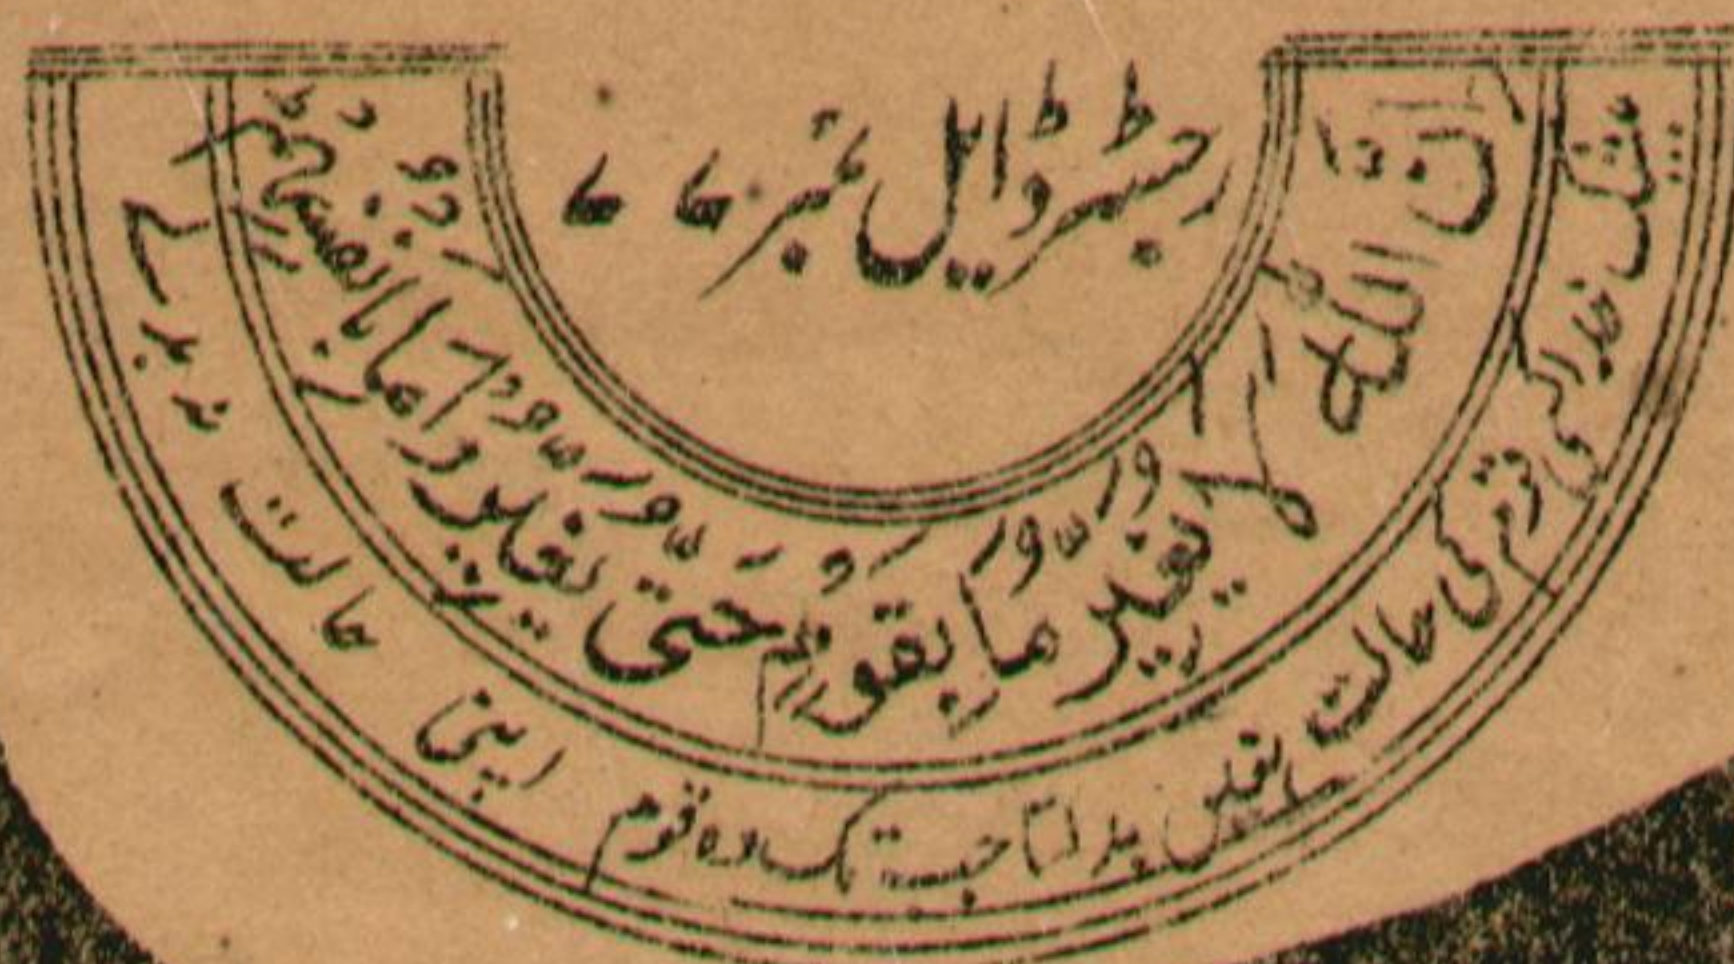 رجسٹرڈ ایل نمبر ۷۷
اِنَّ اللّٰهَ لَا يُغَيِّرُ مَا بِقَوْمٍ حَتّٰى يُغَيِّرُوْا مَا بِاَنْفُسِهِمْ
بیشک خدا کسی قوم کی حالت نہیں بدلتا جب تک وہ قوم اپنی حالت نہ بدلے